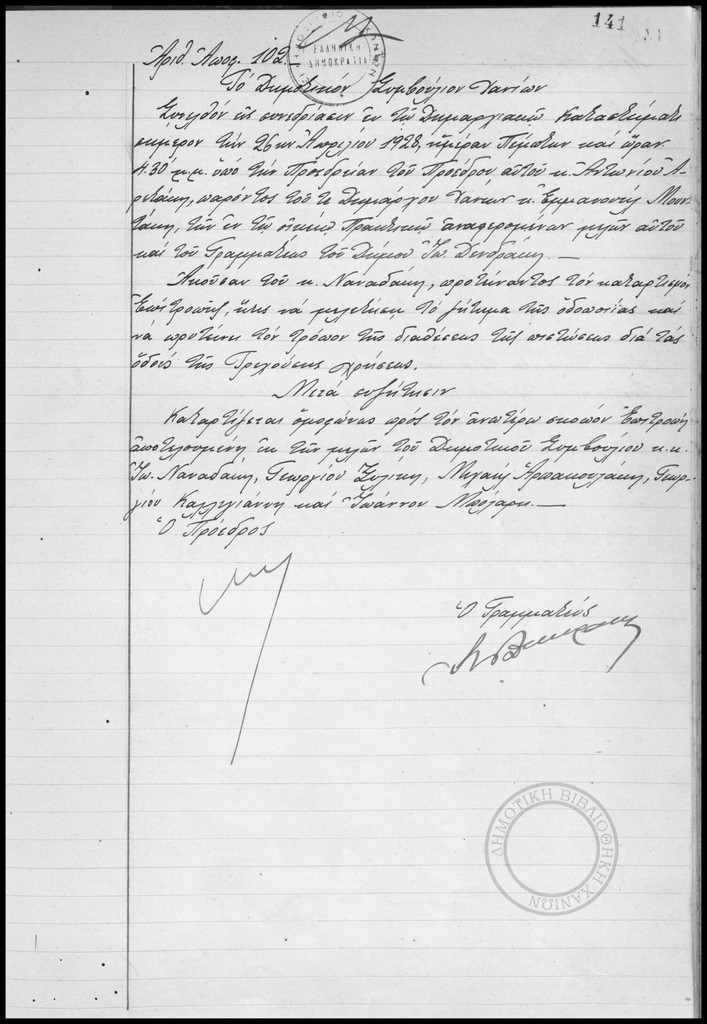 141
ΕΛΛΗΝΙΚΗ
ΔΗΜΟΚΡΑΤΙΑ
Ἀριθ. Ἀποφ. 102
Τό Δημοτικόν Συμβούλιον Χανίων
Συνελθόν εἰς συνεδρίασιν ἐν τῷ Δημαρχιακῷ Καταστήματι
σήμερον τήν 26ην Ἀπριλίου 1928, ἡμέραν Πέμπτην καί ὥραν
4.30 μ.μ. ὑπό τήν Προεδρείαν τοῦ Προέδρου αὐτοῦ κ. Ἀντωνίου
παρόντος τοῦ τε Δημάρχου Χανίων κ. Ἐμμανουήλ Μουν-
τάκη, τῶν ἐν τῷ οἰκείῳ Πρακτικῷ ἀναφερομένων μελῶν αὐτοῦ
καί τοῦ Γραμματέως τοῦ Δήμου Ἰω. Δενδράκη. —
Ἀκοῦσαν τοῦ κ. Ναναδάκη, προτείναντος τόν καταρτισμόν
Ἐπιτροπῆς, ἥτις νά μελετήσῃ τό ζήτημα τῆς ὁδοποιΐας καί
νά προτείνῃ τόν τρόπον τῆς διαθέσεως τῆς πιστώσεως διά τάς
ὁδούς τῆς Τρεχούσης χρήσεως.
Μετά συζήτησιν
Καταρτίζεται ὁμοφώνως πρός τόν ἀνωτέρω σκοπόν Ἐπιτροπή
ἀποτελουμένη ἐκ τῶν μελῶν τοῦ Δημοτικοῦ Συμβουλίου κ.κ.
Ἰω. Ναναδάκη, Γεωργίου Μιχαήλ Γεωρ-
γίου Καλλιγιάννη καί Ἰωάννου
Ὁ Πρόεδρος
Ὁ Γραμματεύς
ΔΗΜΟΤΙΚΗ ΒΙΒΛΙΟΘΗΚΗ ΧΑΝΙΩΝ